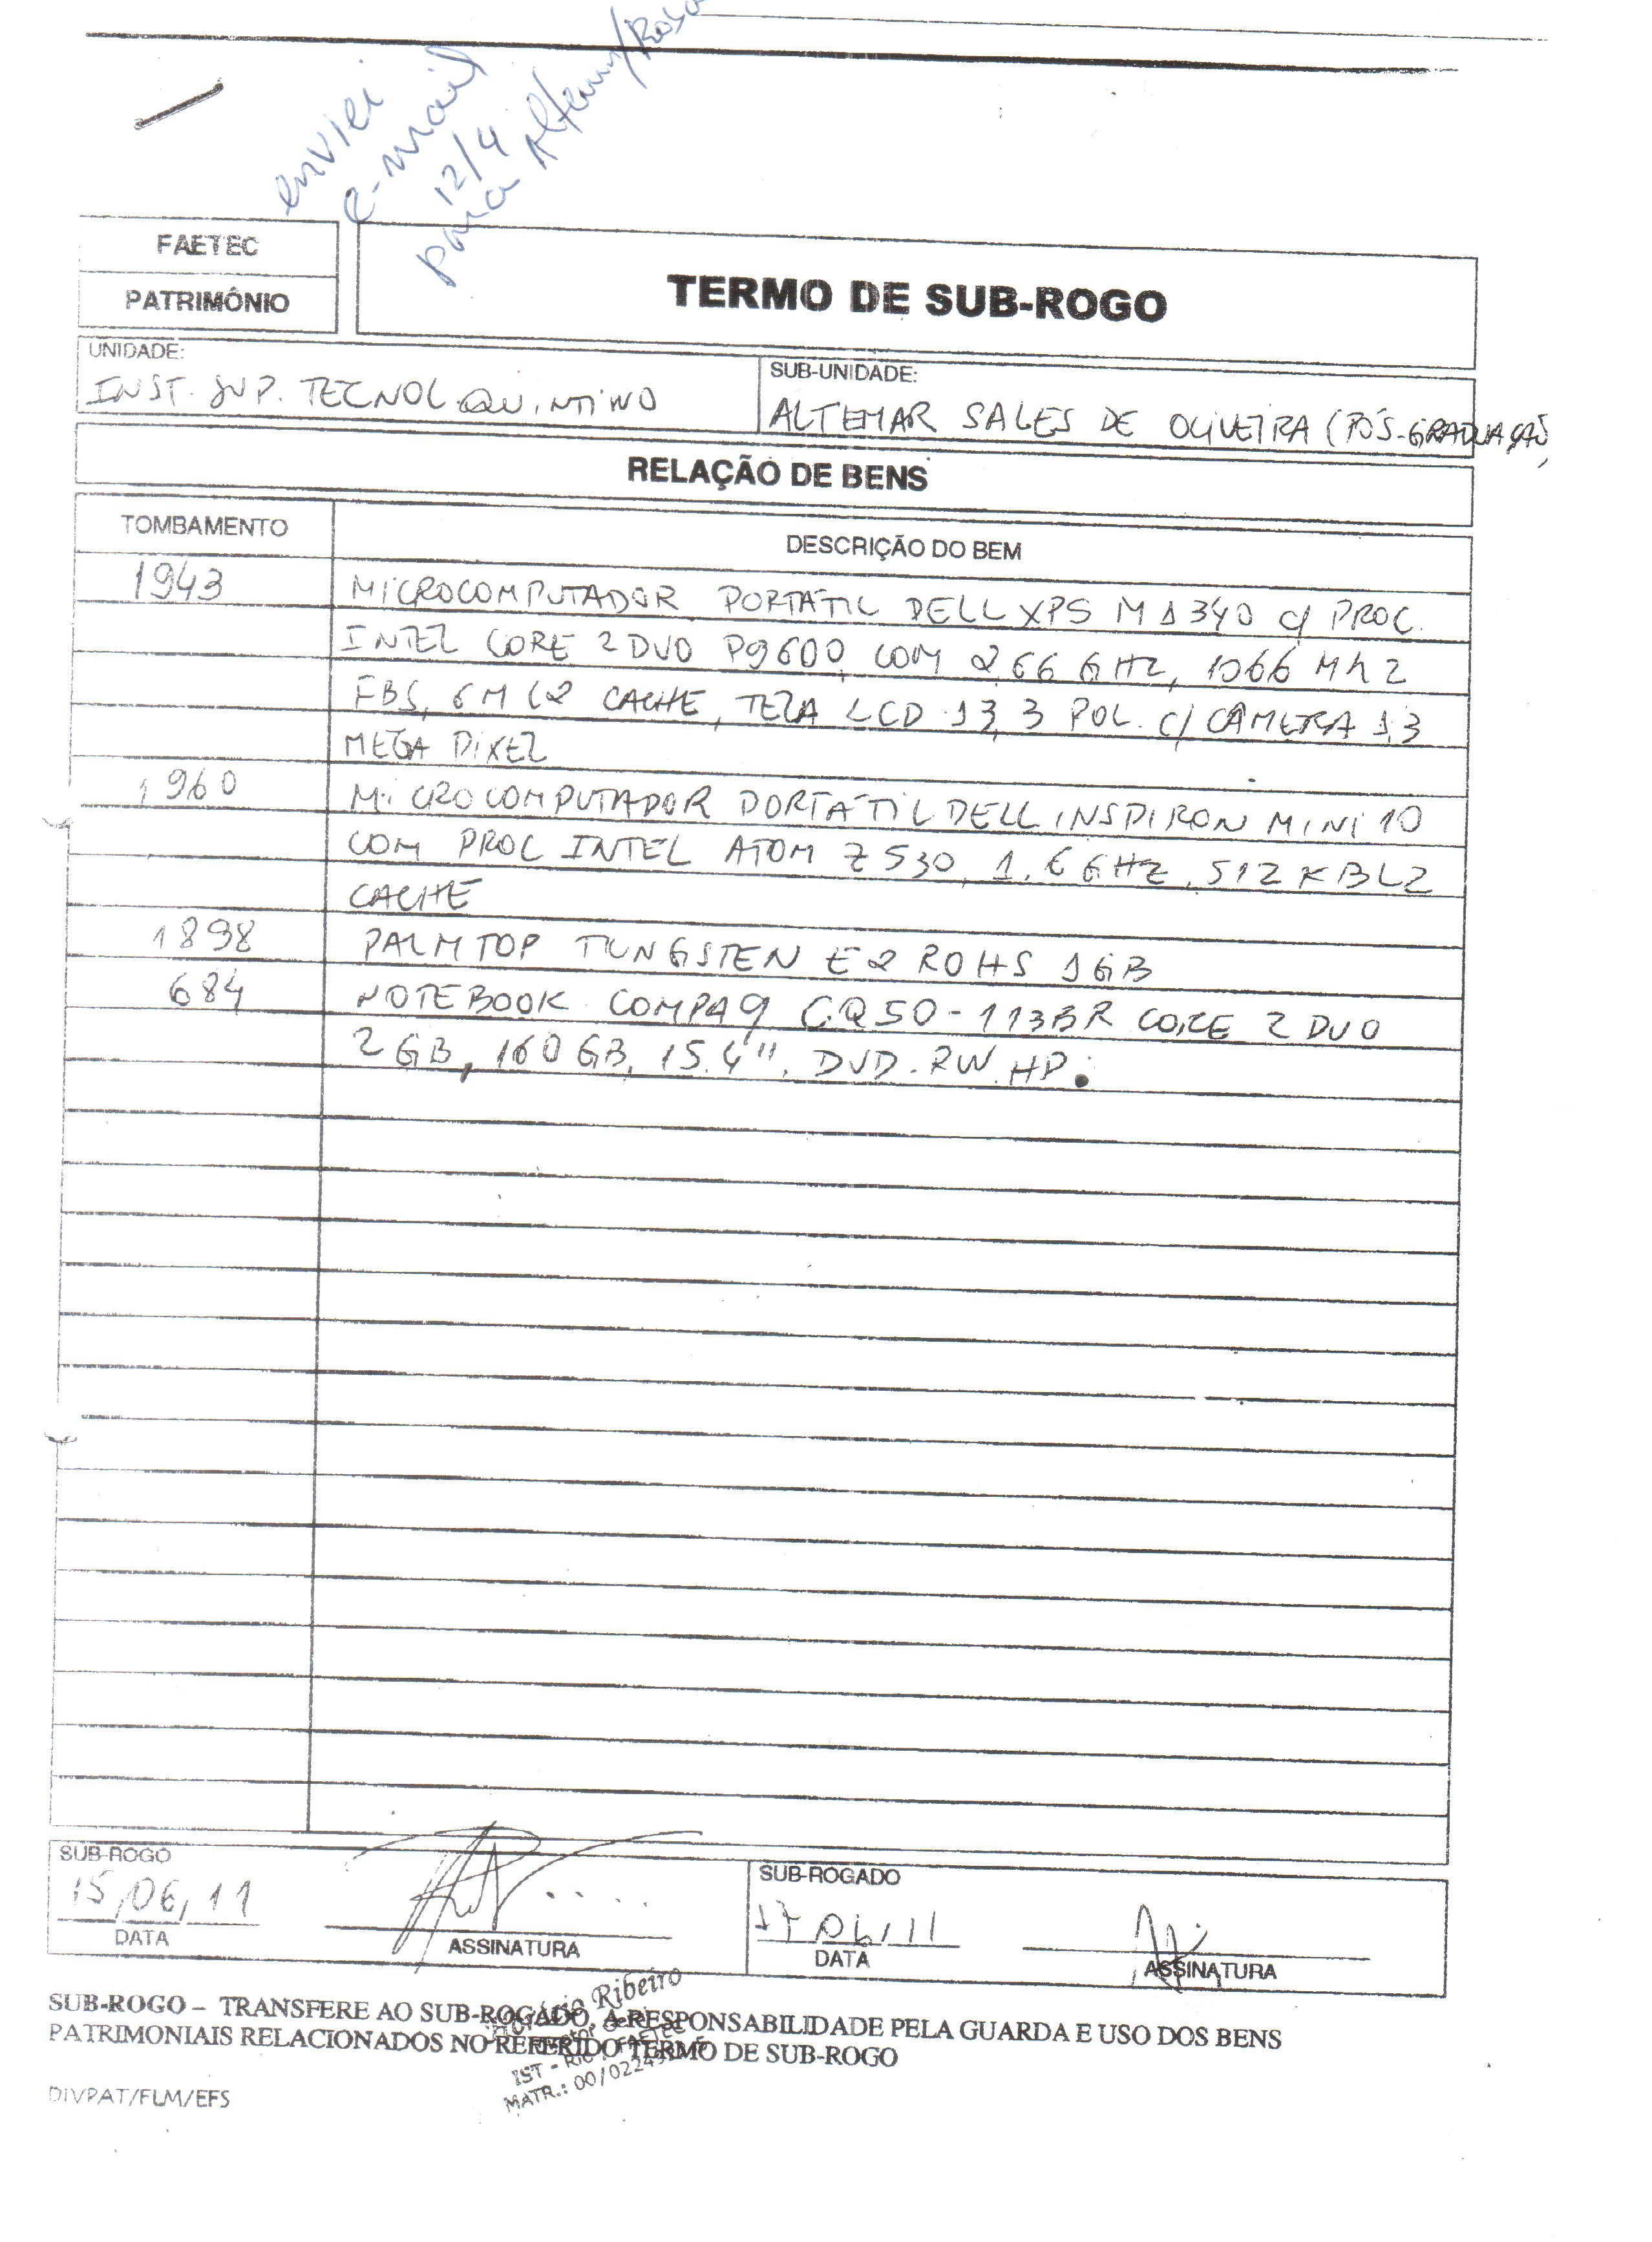 enviei
e-mail
12/4
para Altemar/Rosa
FAETEC
PATRIMÔNIO
TERMO DE SUB-ROGO
UNIDADE:
INST. SUP. TECNOL. QUINTINO
SUB-UNIDADE:
ALTEMAR SALES DE OLIVEIRA (PÓS-GRADUAÇÃO)
RELAÇÃO DE BENS
TOMBAMENTO DESCRIÇÃO DO BEM
1943 MICROCOMPUTADOR PORTÁTIL DELL XPS M1340 c/ PROC.
INTEL CORE 2 DUO P9600, COM 2,66 GHZ, 1066 MHZ
FBS, 6M L2 CACHE, TELA LCD 13,3 POL. C/ CÂMERA 1,3
MEGA PIXEL
1960 MICROCOMPUTADOR PORTÁTIL DELL INSPIRON MINI 10
COM PROC INTEL ATOM Z530, 1.6 GHZ, 512 KB L2
CACHE
1898 PALMTOP TUNGSTEN E2 ROHS 1GB
684 NOTEBOOK COMPAQ CQ50-113BR CORE 2 DUO
2GB, 160GB, 15.4", DVD-RW. HP.
SUB-ROGO
15/06/11
DATA
ASSINATURA
SUB-ROGADO
17/06/11
DATA
ASSINATURA
Ribeiro
IST - RIO / FAETEC
MATR.: 00/0224
SUB-ROGO – TRANSFERE AO SUB-ROGADO, A RESPONSABILIDADE PELA GUARDA E USO DOS BENS
PATRIMONIAIS RELACIONADOS NO REFERIDO TERMO DE SUB-ROGO
DIVPAT/FLM/EFS